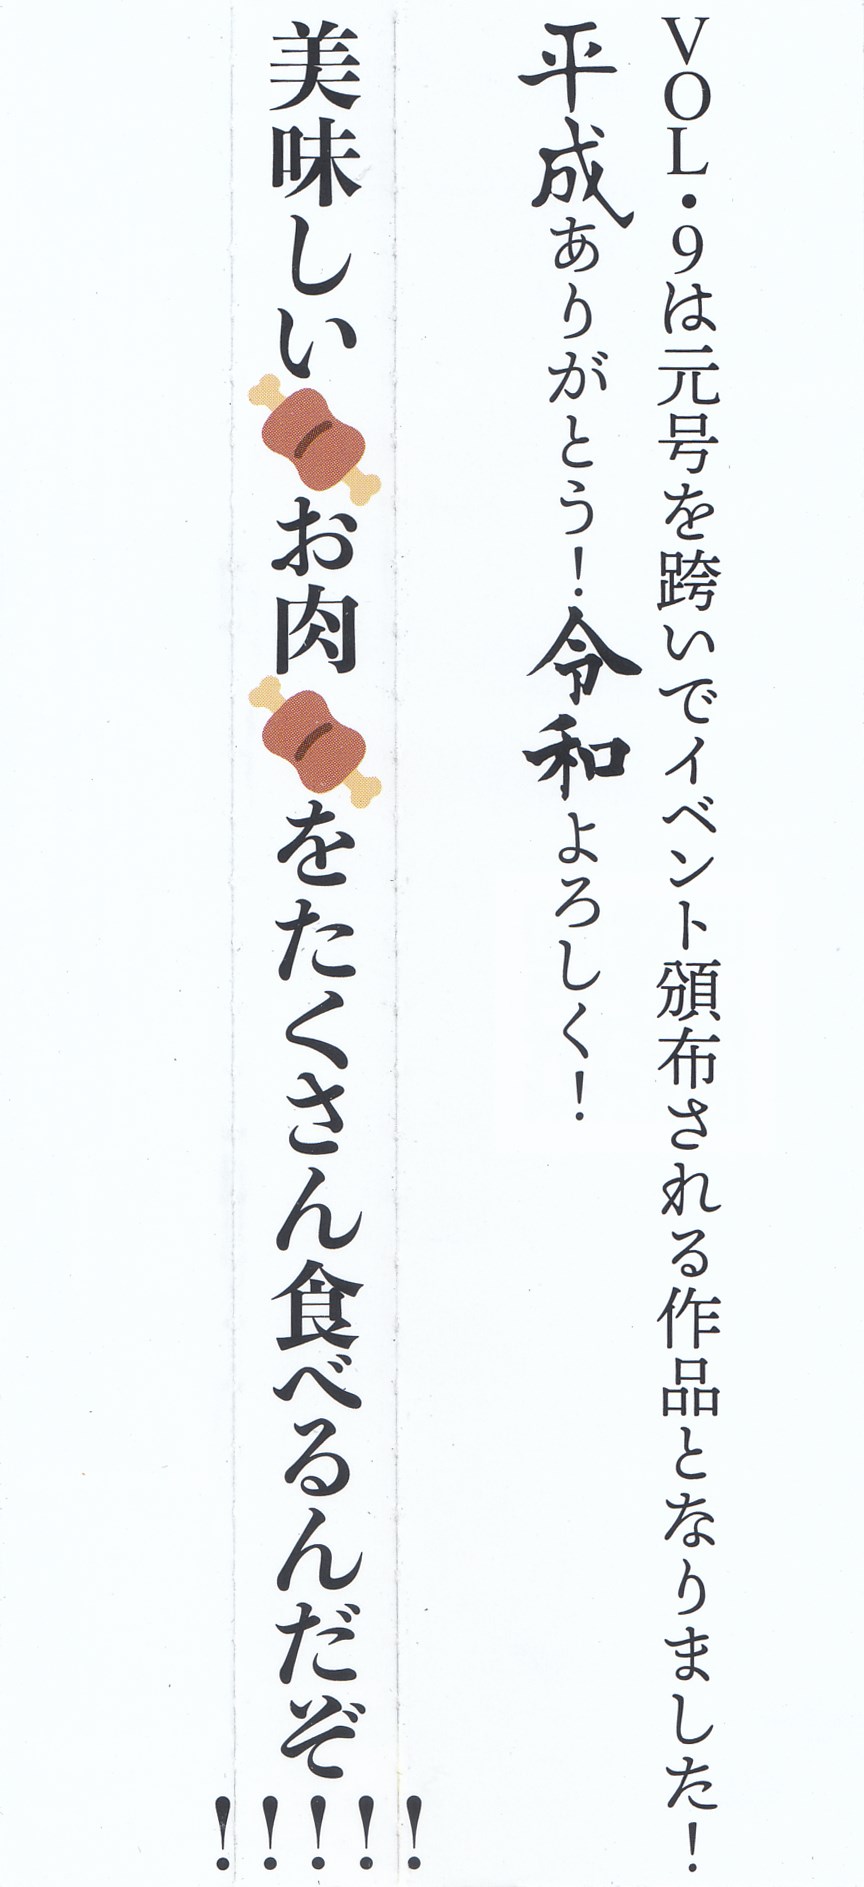 VOL・9は元号を跨いでイベント頒布される作品となりました！
平成ありがとう！令和よろしく！
美味しい🍖お肉🍖をたくさん食べるんだぞ！！！！！